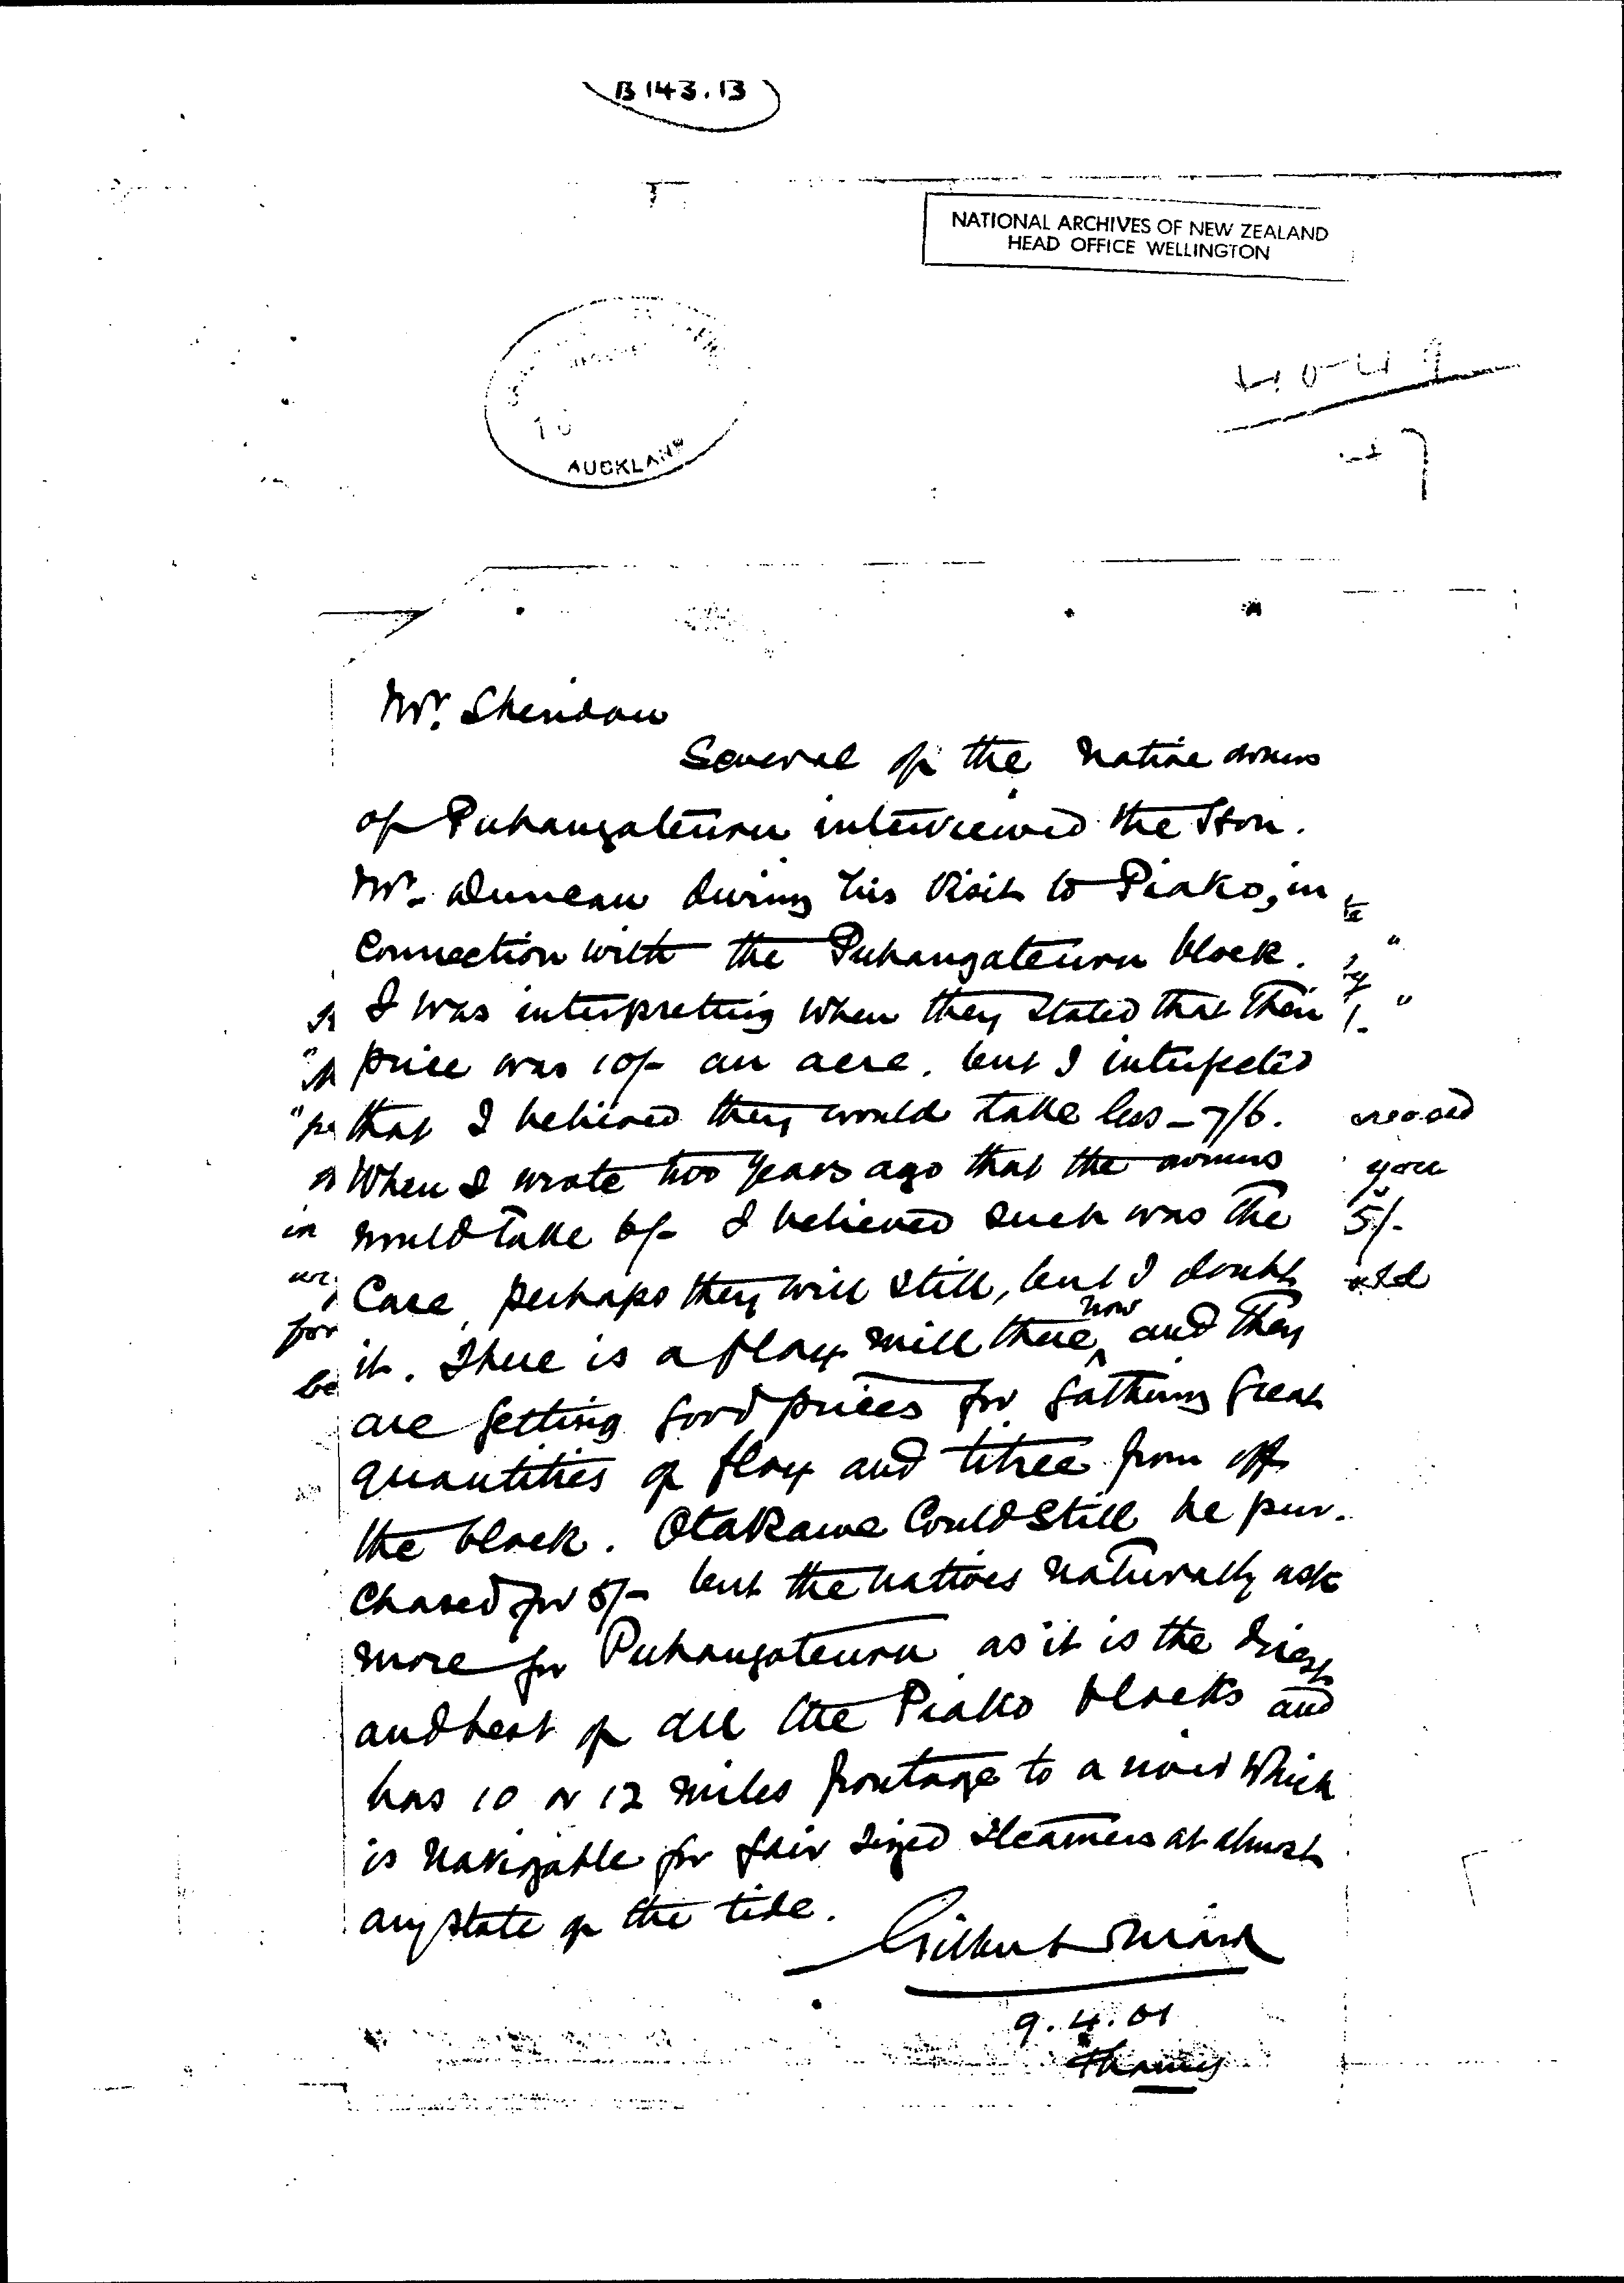 B 143.13
NATIONAL ARCHIVES OF NEW ZEALAND
HEAD OFFICE WELLINGTON
AUCKLAND
Mr. Sheridan
Several of the native owners
of Puhangateuru interviewed the Hon.
Mr. Duncan during his visit to Piako, in
connection with the Puhangateuru block.
I was interpreting when they stated that their
price was 10/- an acre. but I interjected
that I believed they would take less - 7/6.
When I wrote two years ago that the owners
would take 6/- I believed such was the
case, perhaps they will still, but I doubt
it. There is a flax mill there now and they
are getting good prices for gathering great
quantities of flax and titree from off
the block. Otakawe could still be pur-
chased for 5/- but the natives naturally ask
more for Puhangateuru as it is the driest
and best of all the Piako blocks and
has 10 or 12 miles frontage to a river which
is navigable for fair sized steamers at almost
any state of the tide.
Gilbert Mair
9.4.01
Thames
in
for
be
you
5/-